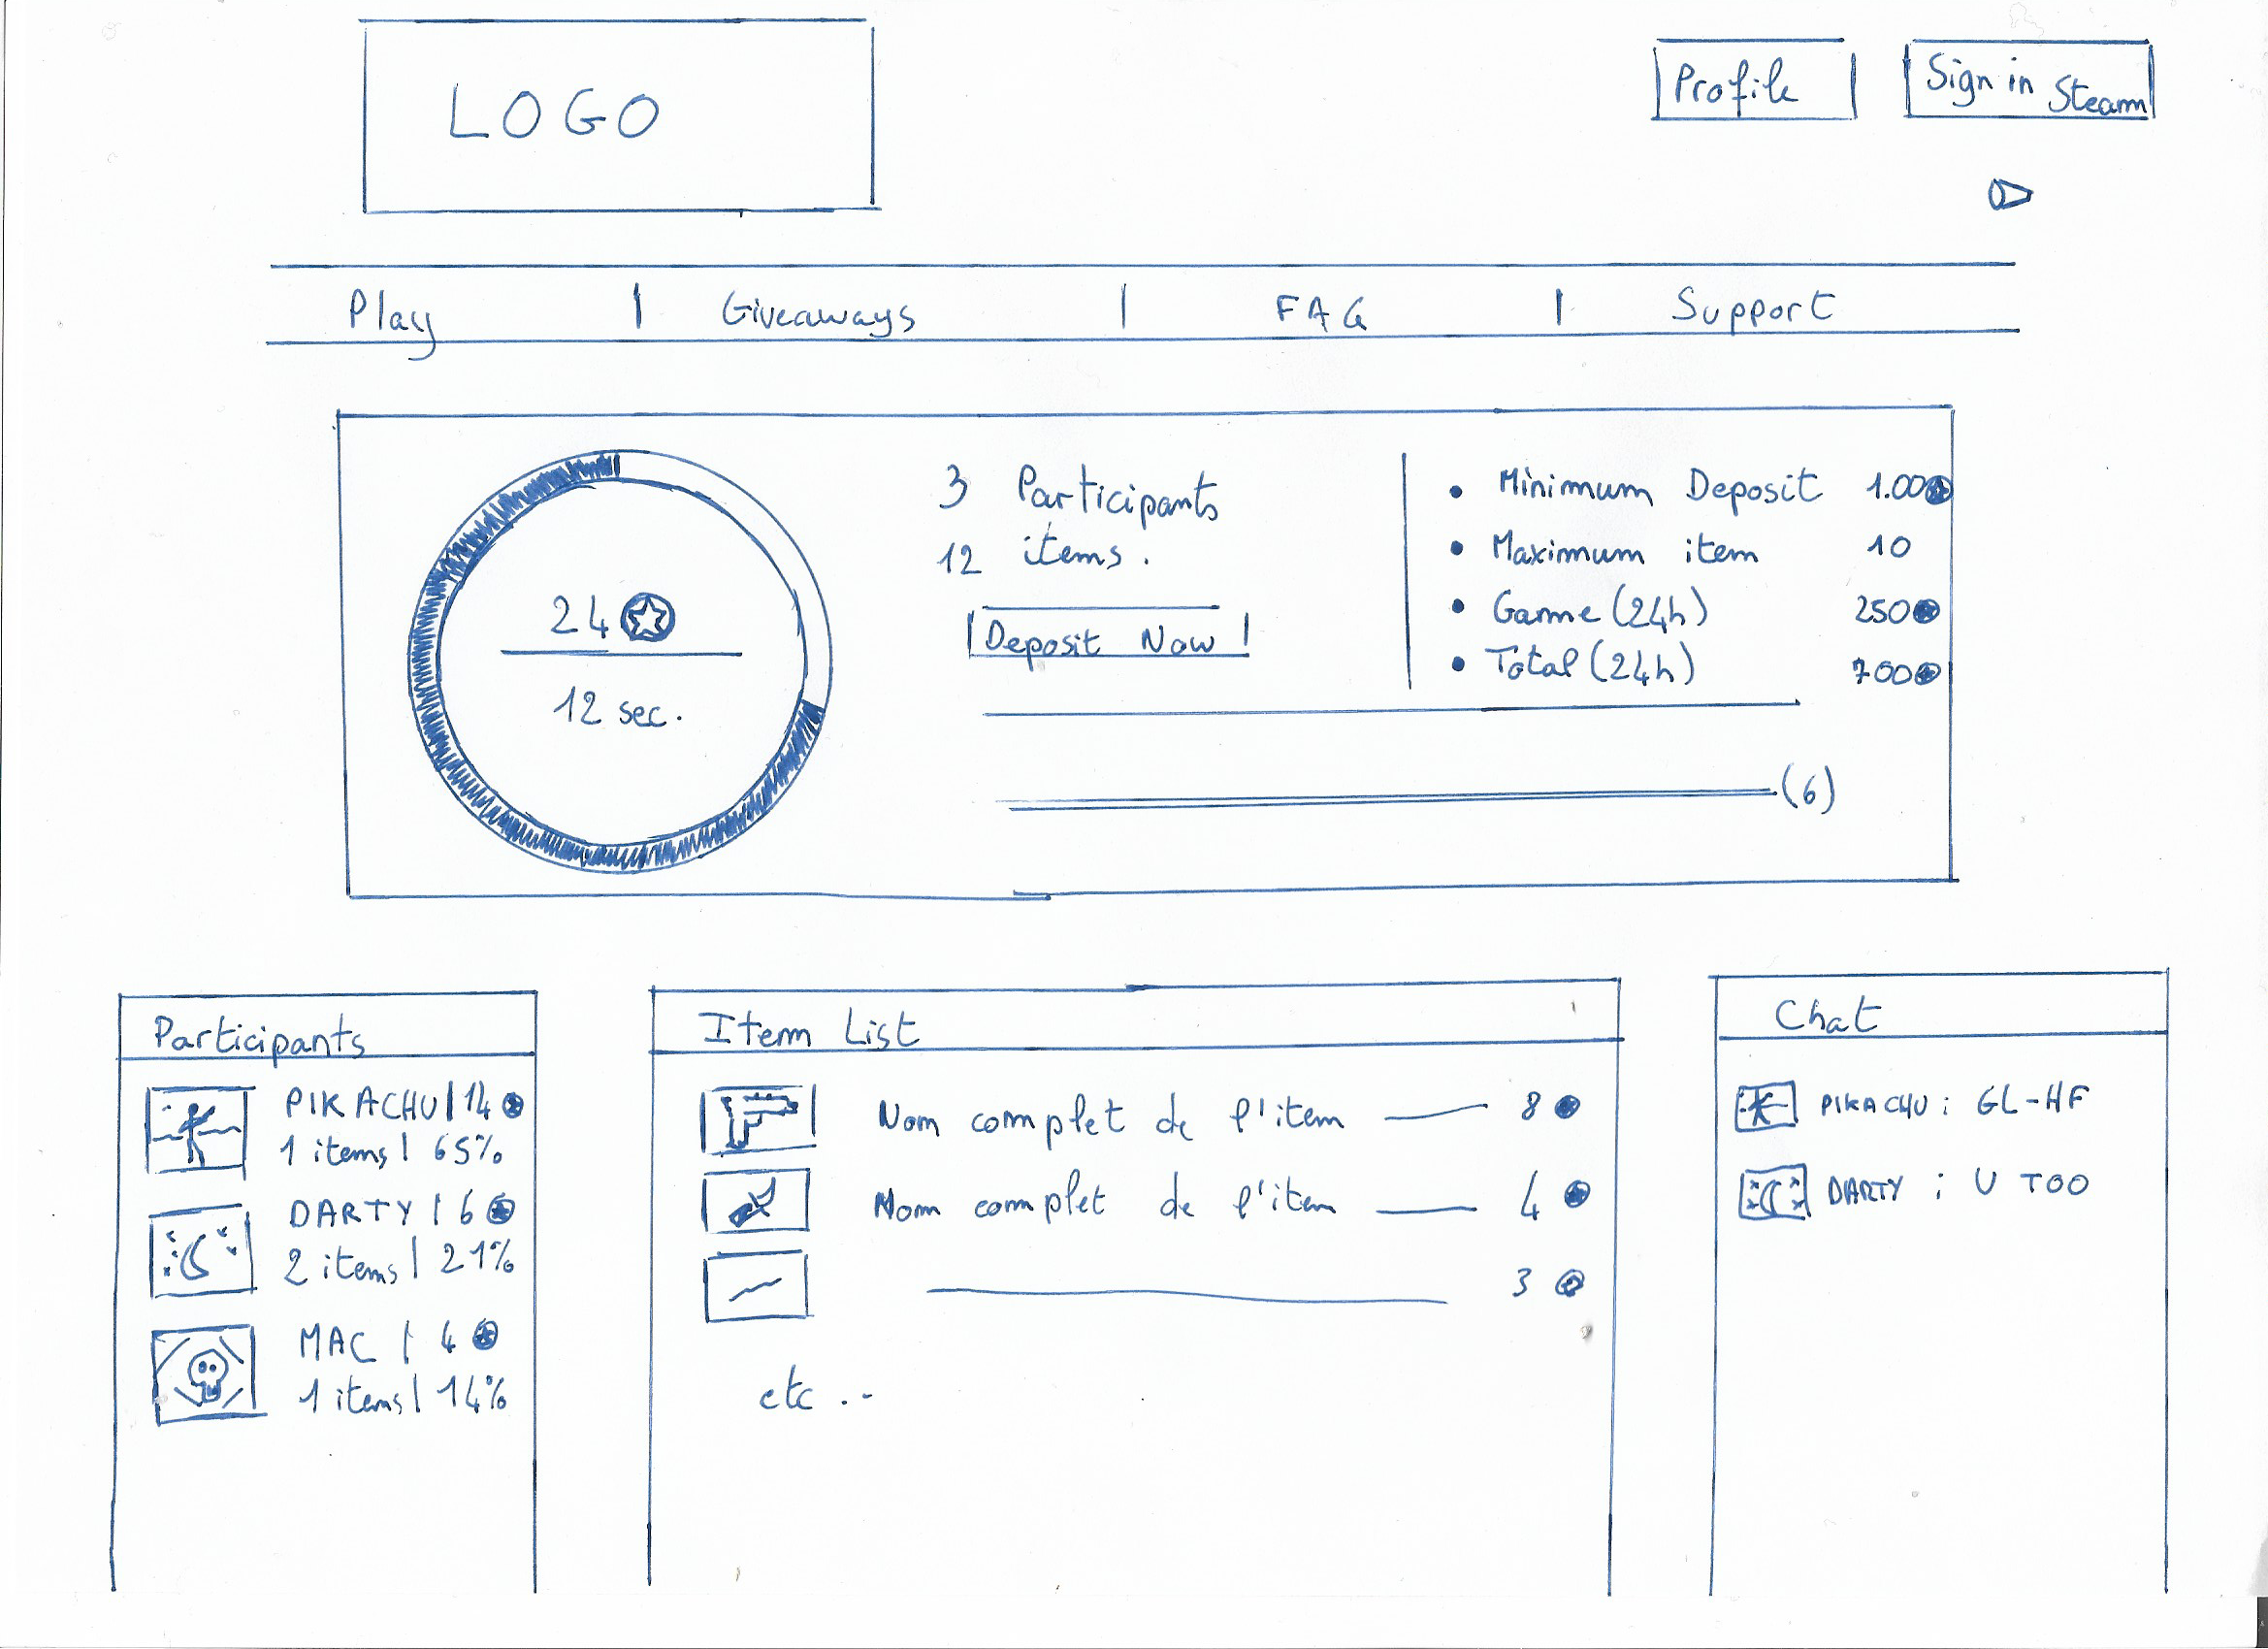 LOGO
Profile
Sign in Steam
Play | Giveaways | FAQ | Support
3 Participants
12 items.
Deposit Now
24
12 sec.
• Minimum Deposit 1.00
• Maximum item 10
• Game (24h) 250
• Total (24h) 700
(6)
Participants
PIKACHU | 14
1 items | 65%
DARTY | 6
2 items | 21%
MAC | 4
1 items | 14%
Item List
Nom complet de l'item 8
Nom complet de l'item 4
3
etc ..
Chat
PIKACHU : GL-HF
DARTY : U TOO